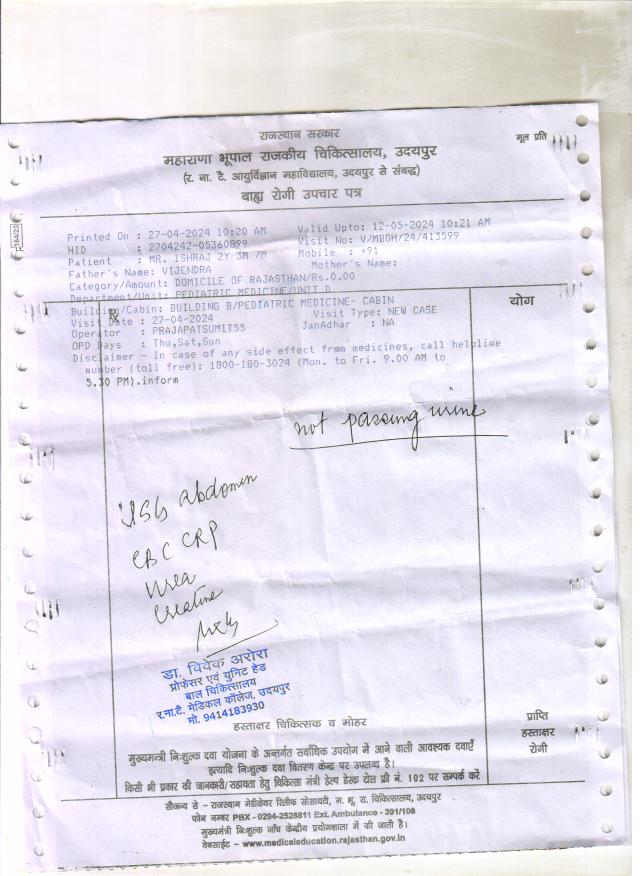 राजस्थान सरकार
मूल प्रति
महाराणा भूपाल राजकीय चिकित्सालय, उदयपुर
(र. ना. टै. आयुर्विज्ञान महाविद्यालय, उदयपुर से संबद्ध)
बाह्य रोगी उपचार पत्र
164/23
Printed On : 27-04-2024 10:20 AM Valid Upto: 12-05-2024 10:21 AM
HID : 2704242-05360899 Visit No: V/MBGH/24/413599
Patient : MR. ISHRAJ 2Y 3M /M Mobile : +91
Father's Name: VIJENDRA Mother's Name:
Category/Amount: DOMICILE OF RAJASTHAN/Rs.0.00
Department/Unit: PEDIATRIC MEDICINE/UNIT D
Building/Cabin: BUILDING B/PEDIATRIC MEDICINE- CABIN
योग
Visit Date : 27-04-2024 Visit Type: NEW CASE
Operator : PRAJAPATSUMIT55 JanAdhar : NA
OPD Days : Thu,Sat,Sun
Disclaimer - In case of any side effect from medicines, call helpline
number (toll free): 1800-180-3024 (Mon. to Fri. 9.00 AM to
5.30 PM).inform
not passing urine
USG abdomen
CBC CRP
urea
creatine
डा. विवेक अरोरा
प्रोफेसर एवं युनिट हेड
बाल चिकित्सालय
र.ना.टै. मेडिकल कॉलेज, उदयपुर
मो. 9414183930
हस्ताक्षर चिकित्सक व मोहर
प्राप्ति
हस्ताक्षर
रोगी
मुख्यमन्त्री निःशुल्क दवा योजना के अन्तर्गत सर्वाधिक उपयोग में आने वाली आवश्यक दवाएँ
इत्यादि निःशुल्क दवा वितरण केन्द्र पर उपलब्ध है।
किसी भी प्रकार की जानकारी/सहायता हेतु चिकित्सा मंत्री हेल्प डेस्क टोल फ्री नं. 102 पर सम्पर्क करें
सौजन्य से - राजस्थान मेडीकेयर रिलीफ सोसायटी, म. भू. रा. चिकित्सालय, उदयपुर
फोन नम्बर PBX - 0294-2528811 Ext. Ambulance - 391/108
मुख्यमंत्री निःशुल्क जाँच केन्द्रीय प्रयोगशाला में की जाती है।
वेबसाईट - www.medicaleducation.rajasthan.gov.in